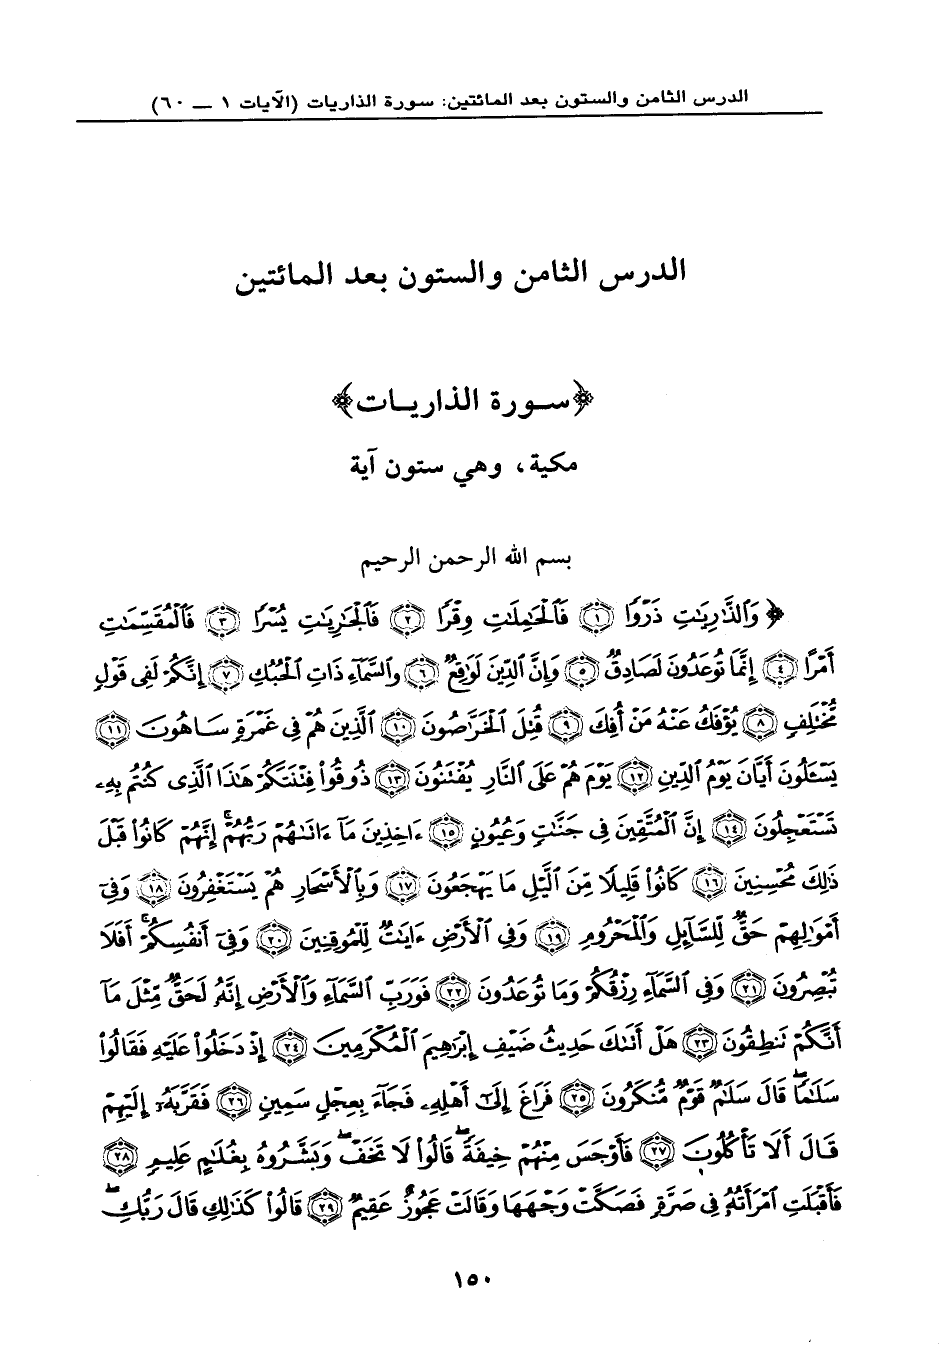 الدرس الثامن والستون بعد المائتين: سورة الذاريات (الآيات ١ — ٦٠)
الدرس الثامن والستون بعد المائتين
﴿سـورة الذاريـات﴾
مكية، وهي ستون آية
بسم الله الرحمن الرحيم
﴿ وَٱلذَّٰرِيَٰتِ ذَرْوًا ۝١ فَٱلْحَٰمِلَٰتِ وِقْرًا ۝٢ فَٱلْجَٰرِيَٰتِ يُسْرًا ۝٣ فَٱلْمُقَسِّمَٰتِ
أَمْرًا ۝٤ إِنَّمَا تُوعَدُونَ لَصَادِقٌ ۝٥ وَإِنَّ ٱلدِّينَ لَوَٰقِعٌ ۝٦ وَٱلسَّمَآءِ ذَاتِ ٱلْحُبُكِ ۝٧ إِنَّكُمْ لَفِى قَوْلٍ
مُّخْتَلِفٍ ۝٨ يُؤْفَكُ عَنْهُ مَنْ أُفِكَ ۝٩ قُتِلَ ٱلْخَرَّٰصُونَ ۝١٠ ٱلَّذِينَ هُمْ فِى غَمْرَةٍ سَاهُونَ ۝١١
يَسْـَٔلُونَ أَيَّانَ يَوْمُ ٱلدِّينِ ۝١٢ يَوْمَ هُمْ عَلَى ٱلنَّارِ يُفْتَنُونَ ۝١٣ ذُوقُوا۟ فِتْنَتَكُمْ هَٰذَا ٱلَّذِى كُنتُم بِهِۦ
تَسْتَعْجِلُونَ ۝١٤ إِنَّ ٱلْمُتَّقِينَ فِى جَنَّٰتٍ وَعُيُونٍ ۝١٥ ءَاخِذِينَ مَآ ءَاتَىٰهُمْ رَبُّهُمْ ۚ إِنَّهُمْ كَانُوا۟ قَبْلَ
ذَٰلِكَ مُحْسِنِينَ ۝١٦ كَانُوا۟ قَلِيلًا مِّنَ ٱلَّيْلِ مَا يَهْجَعُونَ ۝١٧ وَبِٱلْأَسْحَارِ هُمْ يَسْتَغْفِرُونَ ۝١٨ وَفِىٓ
أَمْوَٰلِهِمْ حَقٌّ لِّلسَّآئِلِ وَٱلْمَحْرُومِ ۝١٩ وَفِى ٱلْأَرْضِ ءَايَٰتٌ لِّلْمُوقِنِينَ ۝٢٠ وَفِىٓ أَنفُسِكُمْ ۚ أَفَلَا
تُبْصِرُونَ ۝٢١ وَفِى ٱلسَّمَآءِ رِزْقُكُمْ وَمَا تُوعَدُونَ ۝٢٢ فَوَرَبِّ ٱلسَّمَآءِ وَٱلْأَرْضِ إِنَّهُۥ لَحَقٌّ مِّثْلَ مَآ
أَنَّكُمْ تَنطِقُونَ ۝٢٣ هَلْ أَتَىٰكَ حَدِيثُ ضَيْفِ إِبْرَٰهِيمَ ٱلْمُكْرَمِينَ ۝٢٤ إِذْ دَخَلُوا۟ عَلَيْهِ فَقَالُوا۟
سَلَٰمًا ۖ قَالَ سَلَٰمٌ قَوْمٌ مُّنكَرُونَ ۝٢٥ فَرَاغَ إِلَىٰٓ أَهْلِهِۦ فَجَآءَ بِعِجْلٍ سَمِينٍ ۝٢٦ فَقَرَّبَهُۥٓ إِلَيْهِمْ
قَالَ أَلَا تَأْكُلُونَ ۝٢٧ فَأَوْجَسَ مِنْهُمْ خِيفَةً ۖ قَالُوا۟ لَا تَخَفْ ۖ وَبَشَّرُوهُ بِغُلَٰمٍ عَلِيمٍ ۝٢٨
فَأَقْبَلَتِ ٱمْرَأَتُهُۥ فِى صَرَّةٍ فَصَكَّتْ وَجْهَهَا وَقَالَتْ عَجُوزٌ عَقِيمٌ ۝٢٩ قَالُوا۟ كَذَٰلِكِ قَالَ رَبُّكِ ۖ
١٥٠